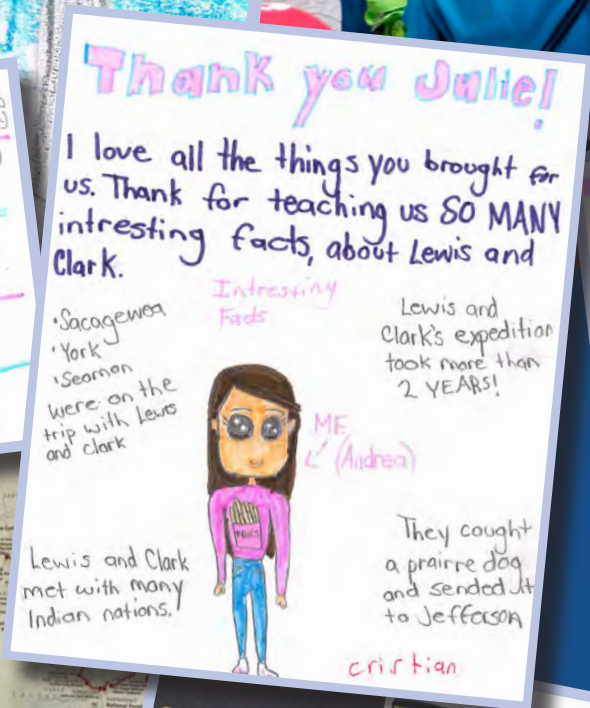 Thank you Julie!
I love all the things you brought for
us. Thank for teaching us SO MANY
intresting facts, about Lewis and
Clark.
Intresting
Facts
• Sacagewea
• York
• Seamon
were on the
trip with Lewis
and clark
Lewis and
Clark's expedition
took more than
2 YEARS!
ME
(Andrea)
Lewis and Clark
met with many
Indian nations.
They cought
a prairre dog
and sended it
to Jefferson
cristian